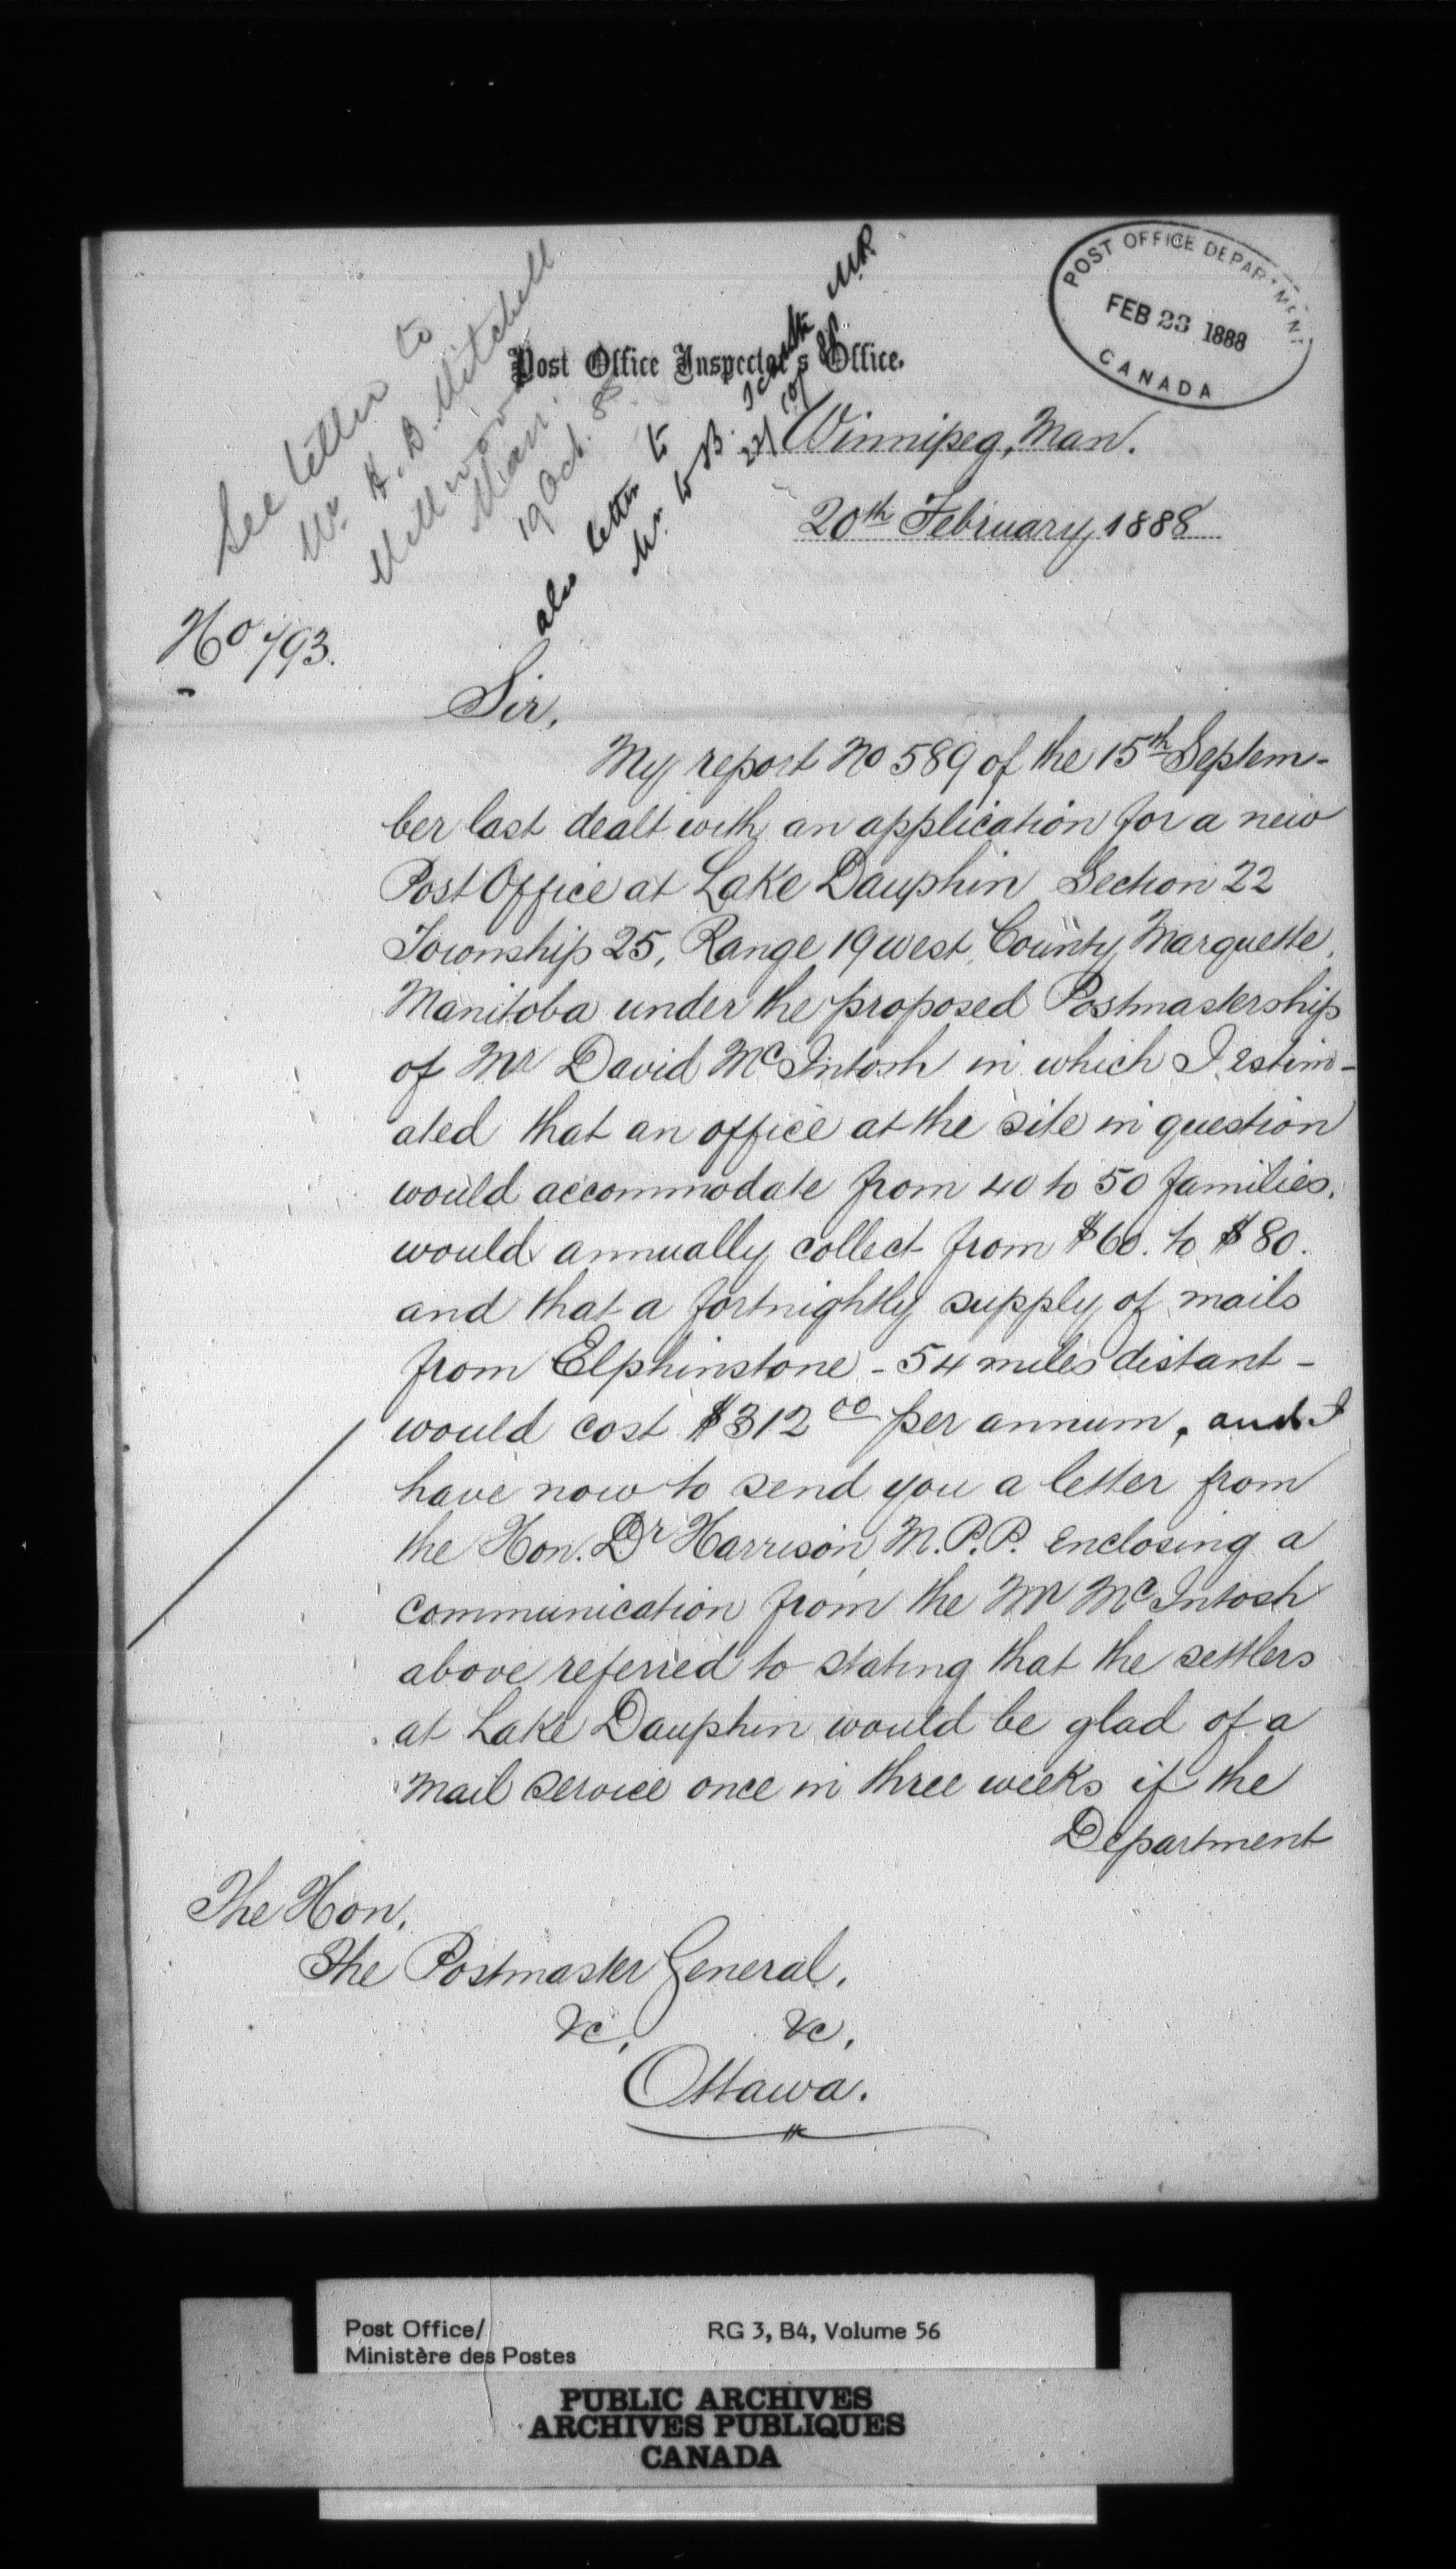 POST OFFICE DEPARTMENT
FEB 23 1888
CANADA
See letter to
Mr. H. B. Mitchell
Millwood
Man.
19 Oct. 8
also letter to
Mr. W. B. MP.
Post Office Inspector's Office.
Winnipeg, Man.
20th February, 1888
No 793.
Sir,
My report No 589 of the 15th Septem-
ber last dealt with an application for a new
Post Office at Lake Dauphin Section 22
Township 25, Range 19 west, County Marquette,
Manitoba under the proposed Postmastership
of Mr David McIntosh in which I estim-
ated that an office at the site in question
would accommodate from 40 to 50 families,
would annually collect from $60. to $80.
and that a fortnightly supply of mails
from Elphinstone - 54 miles distant -
would cost $312 00 per annum, and I
have now to send you a letter from
the Hon. Dr Harrison, M.P.P. enclosing a
communication from the Mr McIntosh
above referred to stating that the settlers
at Lake Dauphin would be glad of a
mail service once in three weeks if the
Department
The Hon.
The Postmaster General,
&c, &c,
Ottawa.
Post Office/
Ministère des Postes
RG 3, B4, Volume 56
PUBLIC ARCHIVES
ARCHIVES PUBLIQUES
CANADA